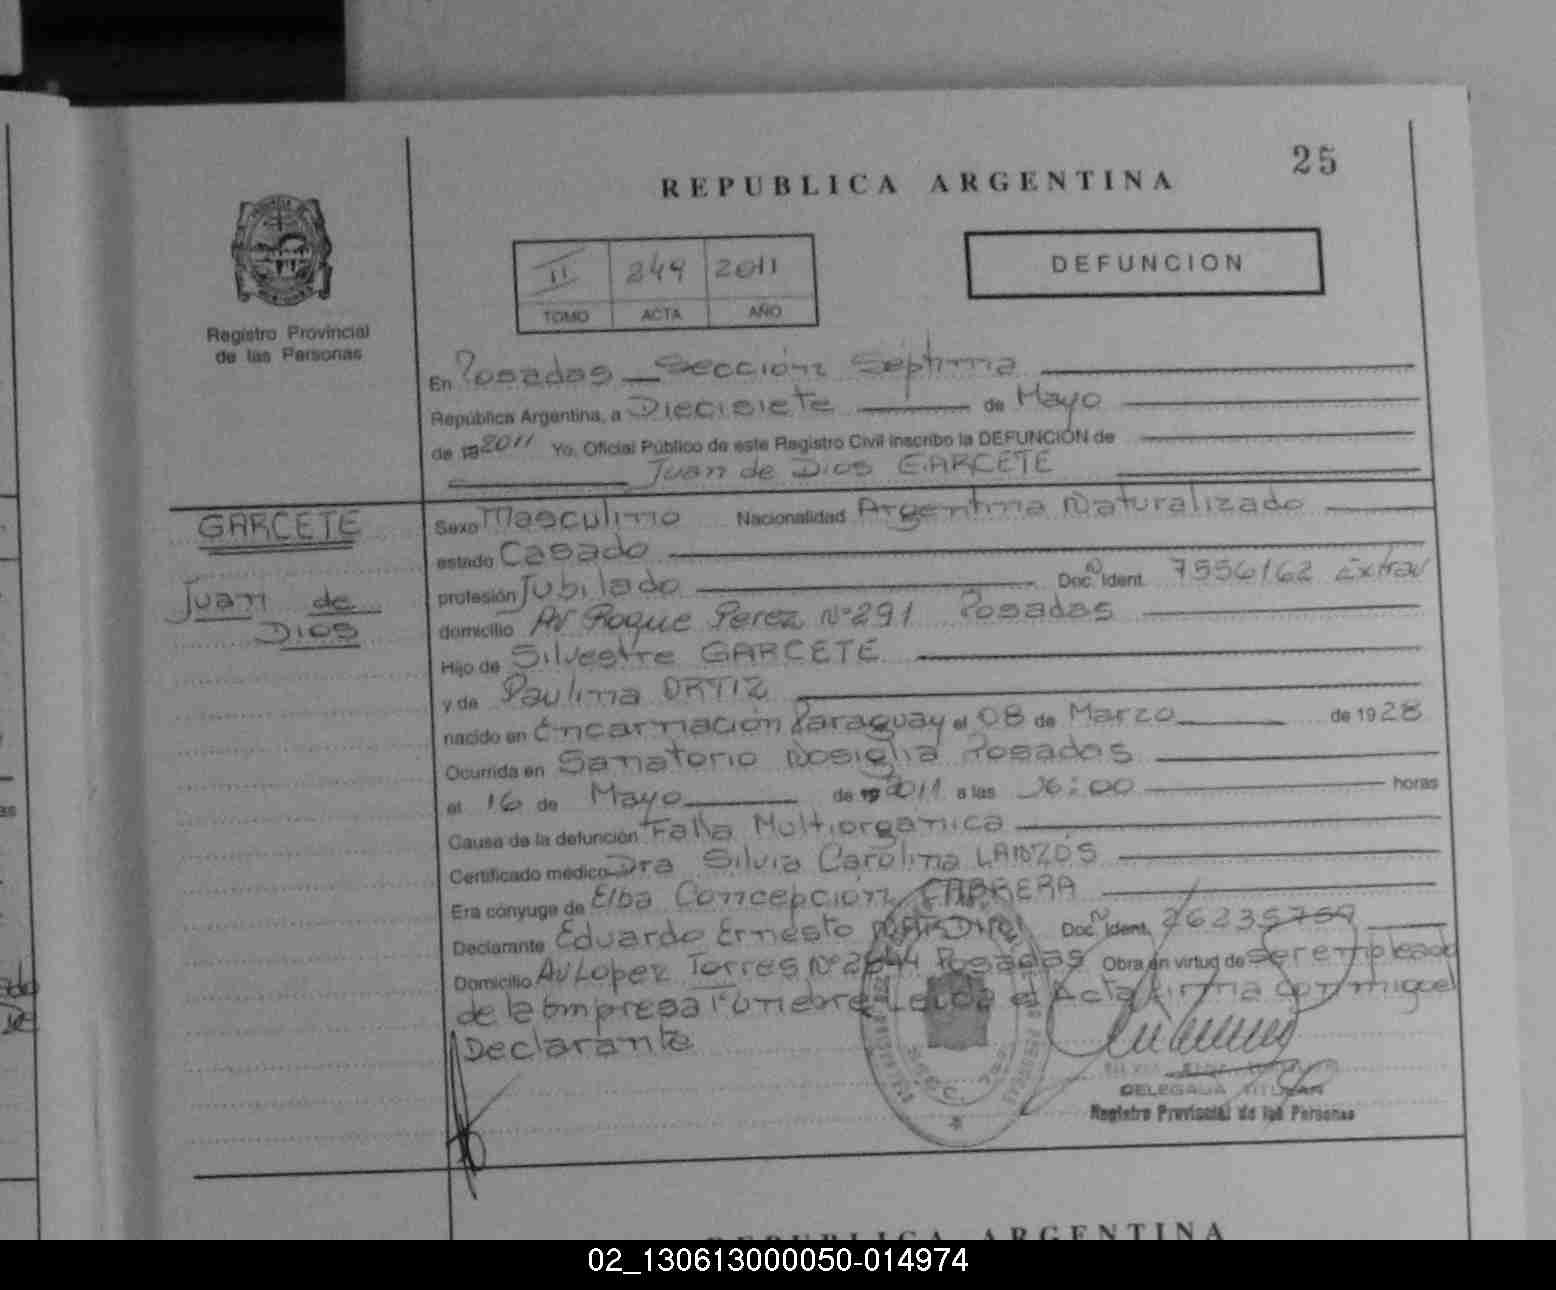 25
REPUBLICA ARGENTINA
II 249 2011
TOMO ACTA AÑO
DEFUNCION
Registro Provincial
de las Personas
En Posadas Sección Séptima
República Argentina, a Diecisiete de Mayo
de 19 2011 Yo, Oficial Público de este Registro Civil inscribo la DEFUNCIÓN de
Juan de Dios GARCETE
GARCETE
Juan de
Dios
Sexo Masculino Nacionalidad Argentina Naturalizado
estado Casado
profesión Jubilado Doc. Ident. 7556162 Extrav
domicilio Av Roque Perez N° 291 Posadas
Hijo de Silvestre GARCETE
y de Paulina ORTIZ
nacido en Encarnación Paraguay el 08 de Marzo de 1928
Ocurrida en Sanatorio Nosiglia Posadas
el 16 de Mayo de 19 2011 a las :00 horas
Causa de la defunción Falla Multiorganica
Certificado médico Dra Silvia Carolina LANZÓS
Era cónyuge de Elba Concepción CABRERA
Declarante Eduardo Ernesto Doc. Ident. 26235759
Domicilio Av Lopez Torres N° 2644 Posadas Obra en virtud de ser empleado
de la Empresa Funebre Leida el Acta firma conmigo el
Declarante
DELEGADA TITULAR
Registro Provincial de las Personas
REPUBLICA ARGENTINA
02_130613000050-014974